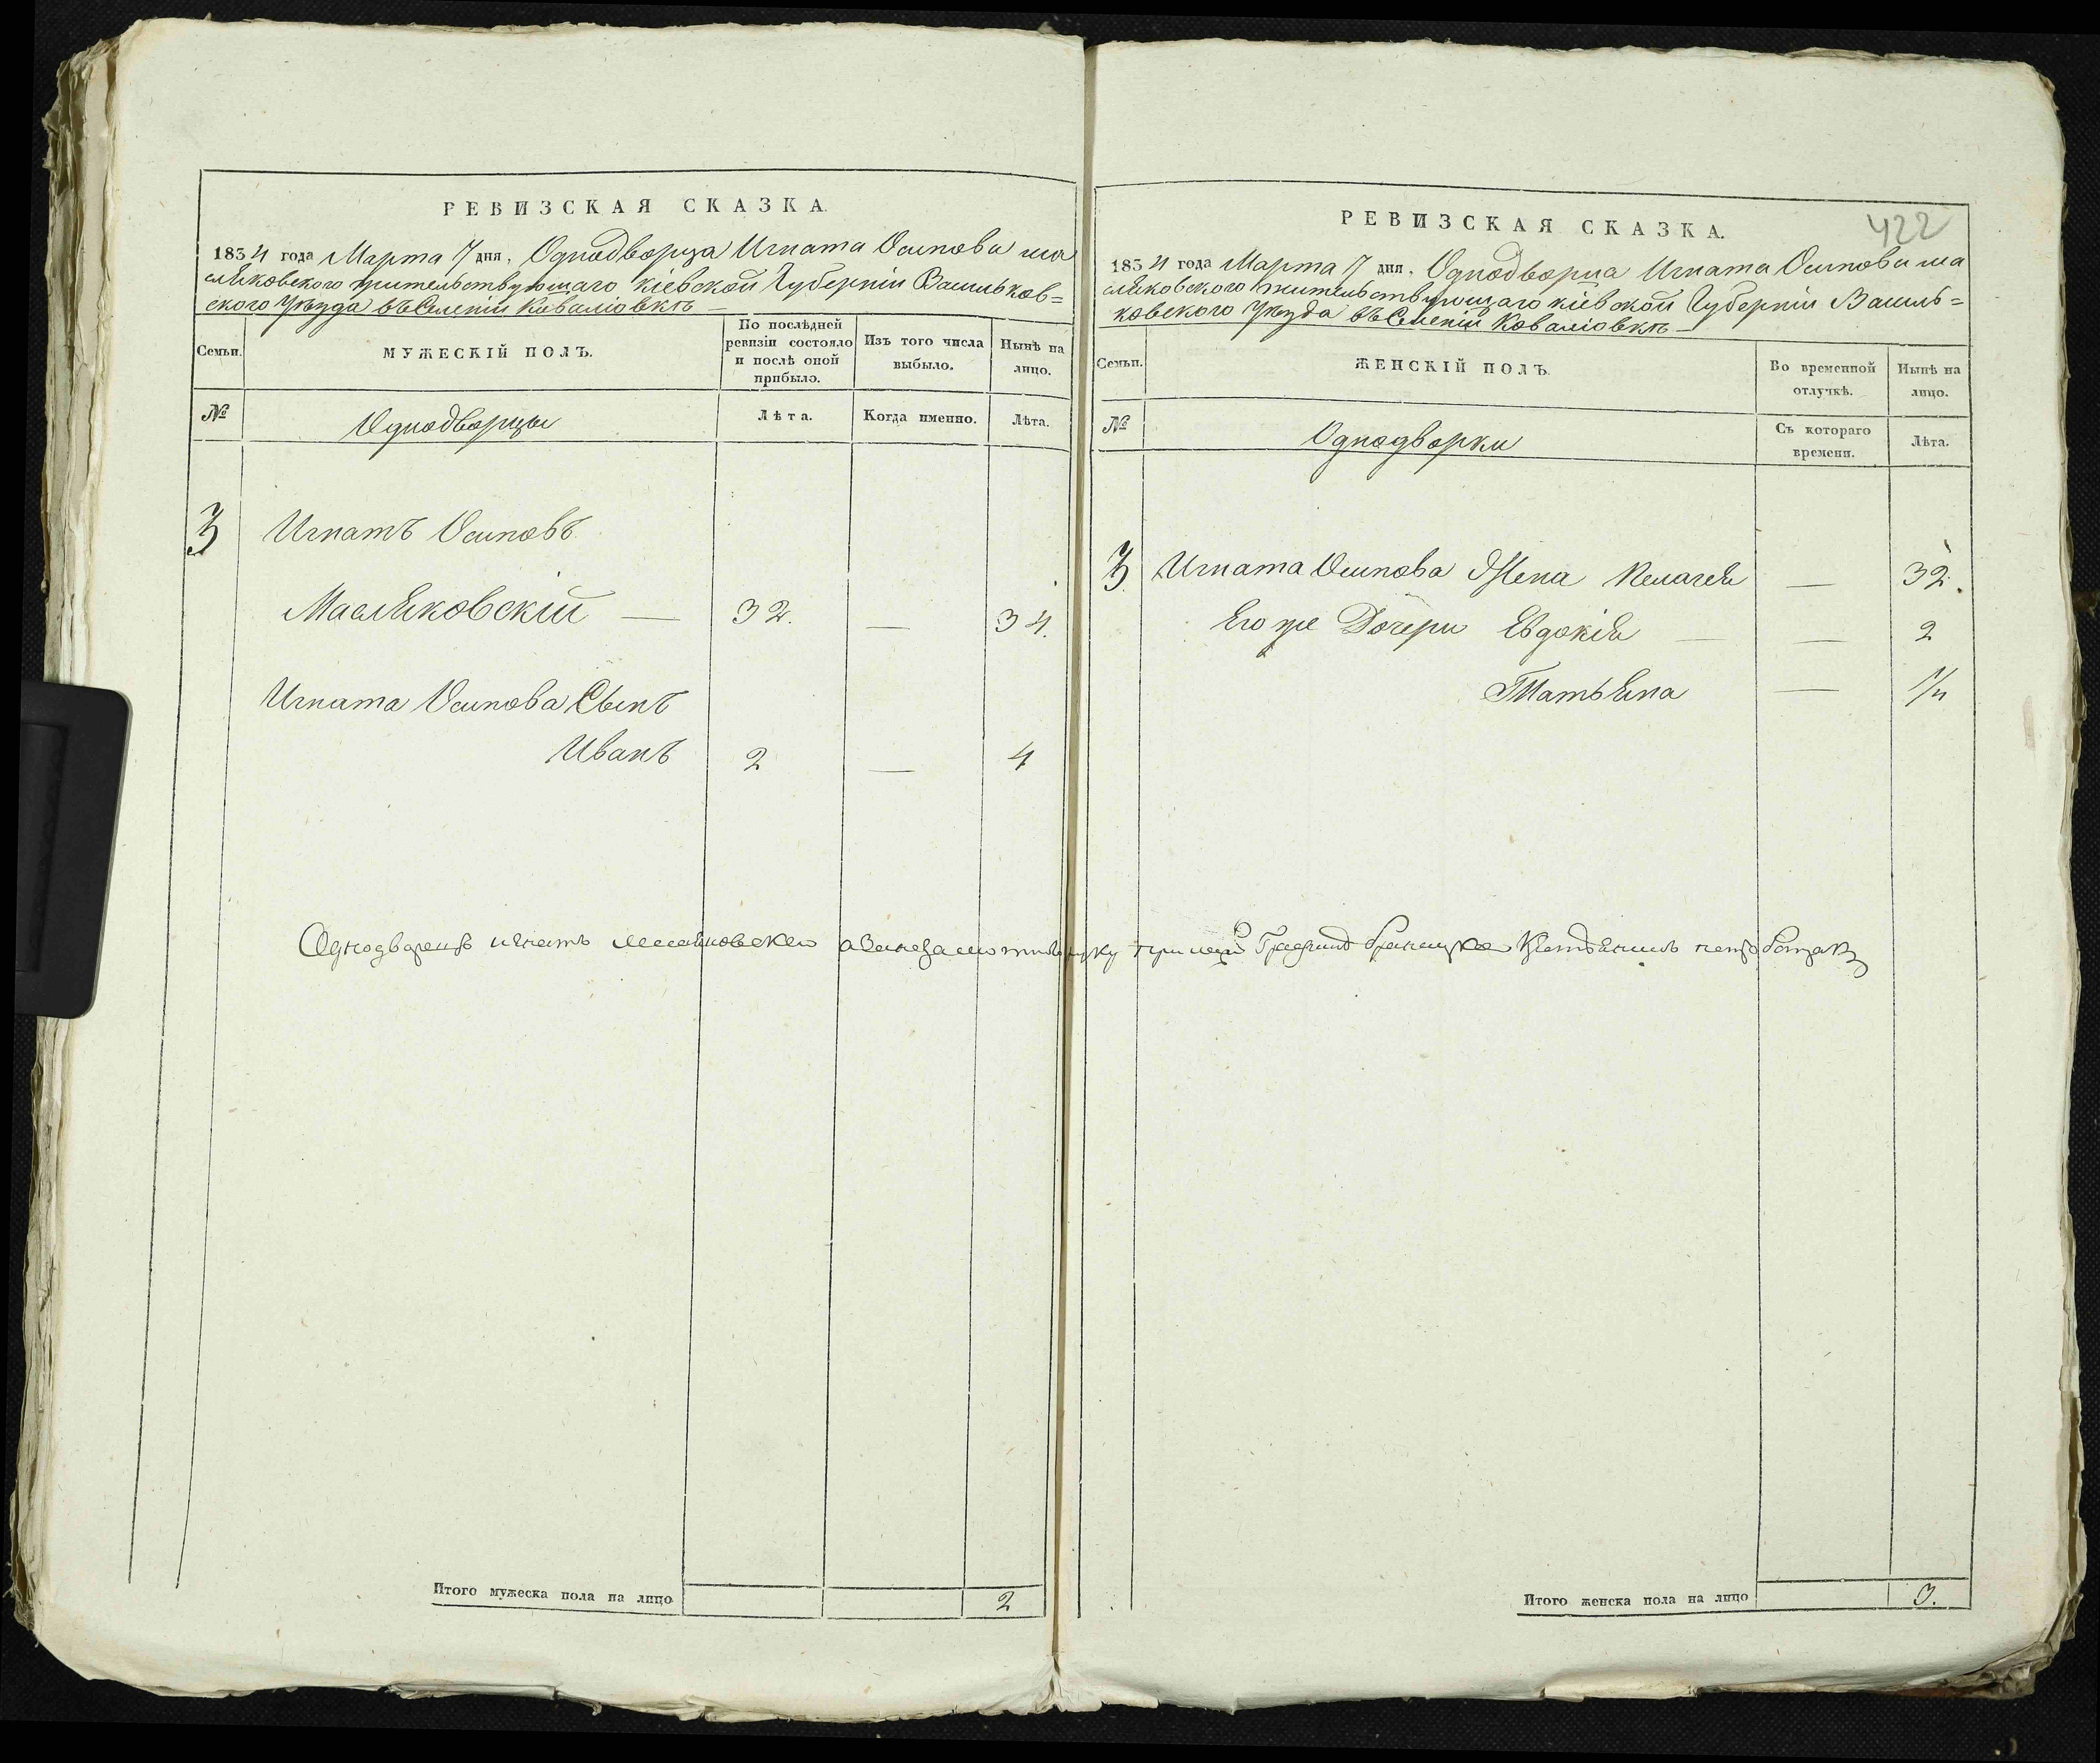 РЕВИЗСКАЯ СКАЗКА.
1834 года Марта 7 дня, Однодворца Игната Осипова Ма
сляковского жительствующаго кіевской Губерніи Васильков=
ского Уѣзда въ Селеніи Коваліовкѣ
Семьи.
МУЖЕСКІЙ ПОЛЪ.
По послѣдней ревизіи состояло и послѣ оной прибыло.
Изъ того числа выбыло.
Нынѣ на лицо.
№
Однодворцы
Лѣта.
Когда именно.
Лѣта.
3 Игнатъ Осиповъ
Масляковскій — 32. — 34.
Игната Осипова Сынъ
Иванъ 2 — 4
Однодворецъ игнатъ
Итого мужеска пола на лицо 2
422
РЕВИЗСКАЯ СКАЗКА.
1834 года Марта 7 дня, Однодворца Игната Осипова Ма
сляковского жительствующаго кіевской Губерніи Василь=
ковского Уѣзда въ Селеніи Коваліовкѣ —
Семьи.
ЖЕНСКІЙ ПОЛЪ.
Во временной отлучкѣ.
Нынѣ на лицо.
№
Однодворки
Съ котораго времени.
Лѣта.
3 Игната Осипова Жена Пелагея — 32.
Его же Дочери Евдокія — — 2
Татьяна —
Итого женска пола на лицо 3.